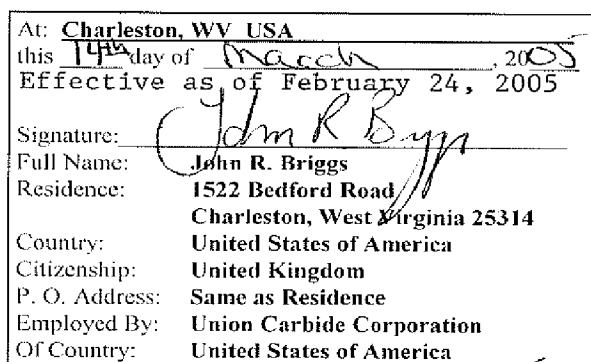 At: Charleston, WV USA
this 14th day of March, 2005
Effective as of February 24, 2005
Signature: John R Briggs
Full Name: John R. Briggs
Residence: 1522 Bedford Road
Charleston, West Virginia 25314
Country: United States of America
Citizenship: United Kingdom
P. O. Address: Same as Residence
Employed By: Union Carbide Corporation
Of Country: United States of America